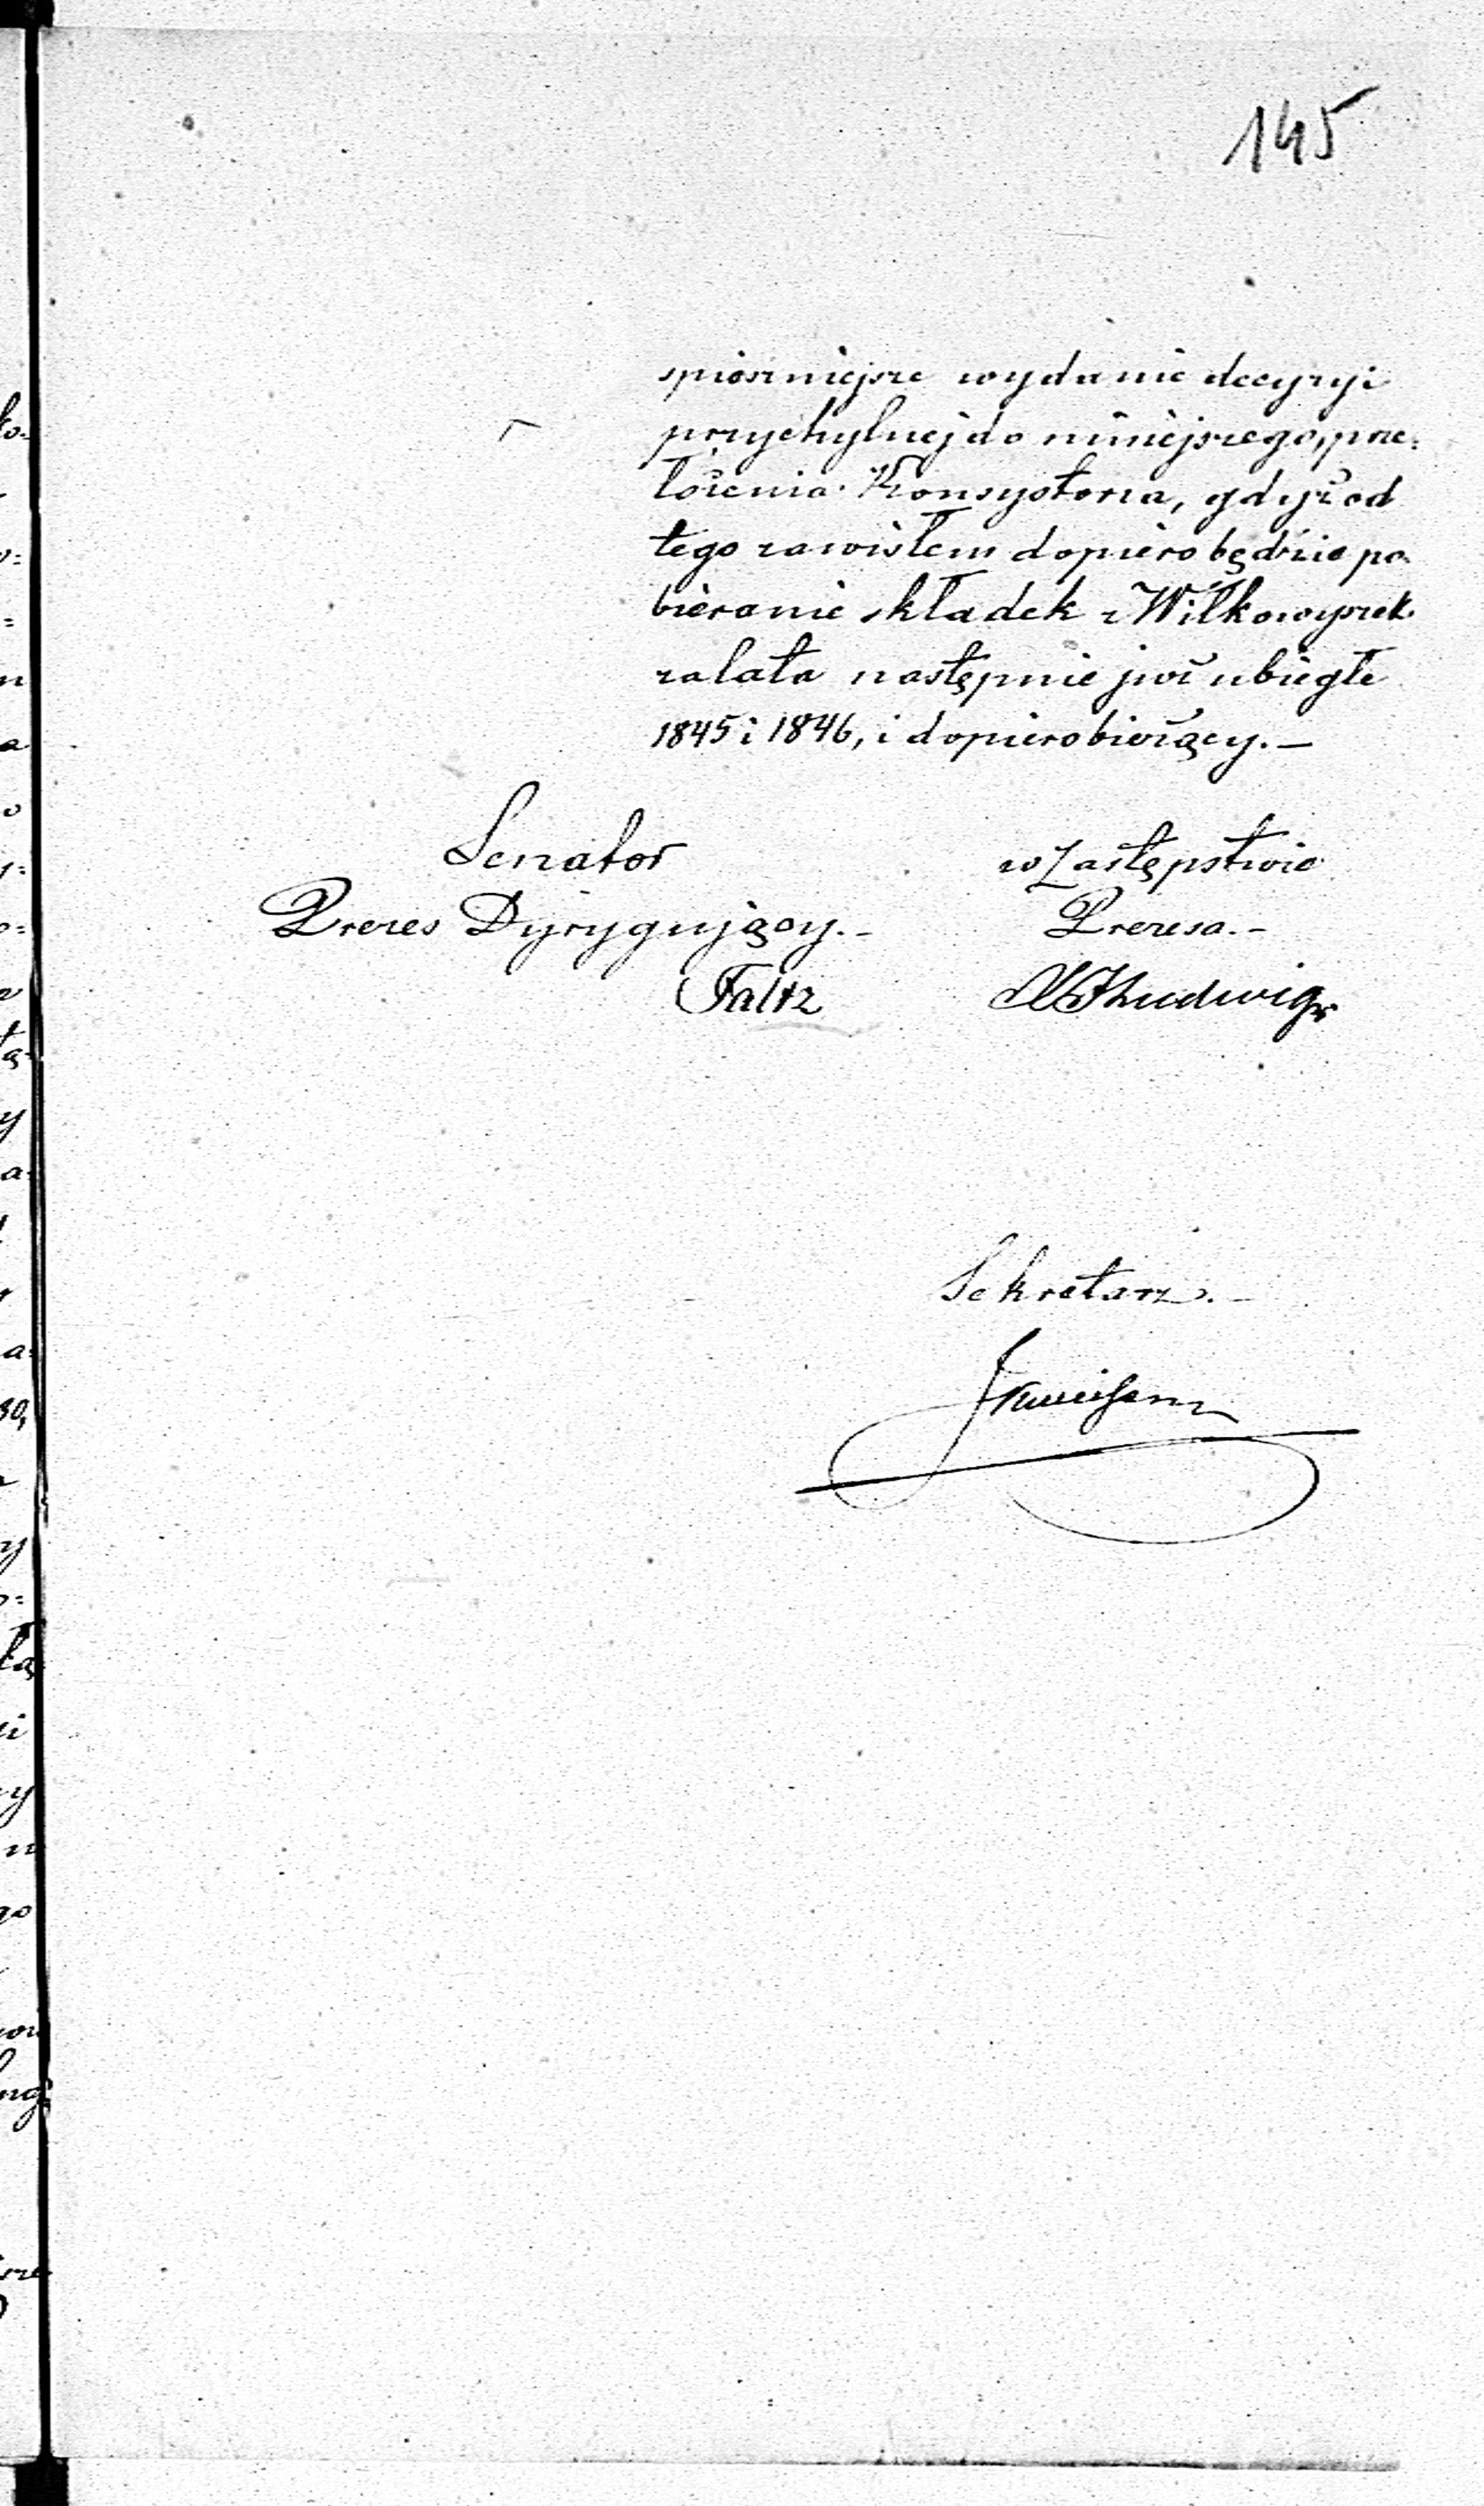 145
spieszniejsze wydanie decyzyi
przychylnej do niniejszego, prze=
łożenia Konsystorza, gdyż od
tego zawisłem dopiero będzie po=
bieranie składek z Wiłkowyszek
za lata następnie już ubiegłe
1845 i 1846, i dopiero bieżący. —
Senator
w Zastępstwie
Prezes Dyrygujący. -
Prezesa. -
Faltz
Ludwig
Sekretarz. -